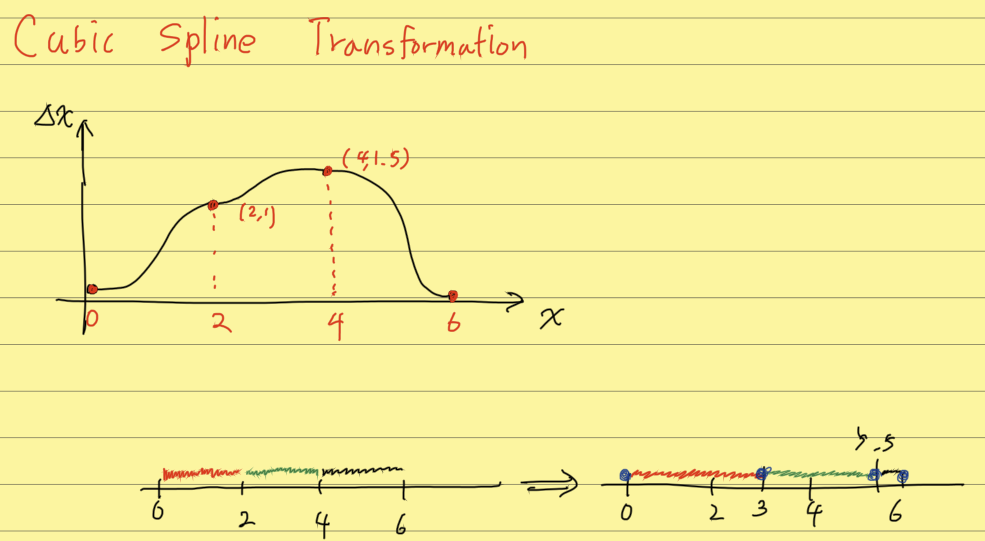 Cubic Spline Transformation
Δx
(4,1.5)
(2,1)
0 2 4 6 x
5.5
0 2 4 6 ⇒ 0 2 3 4 6